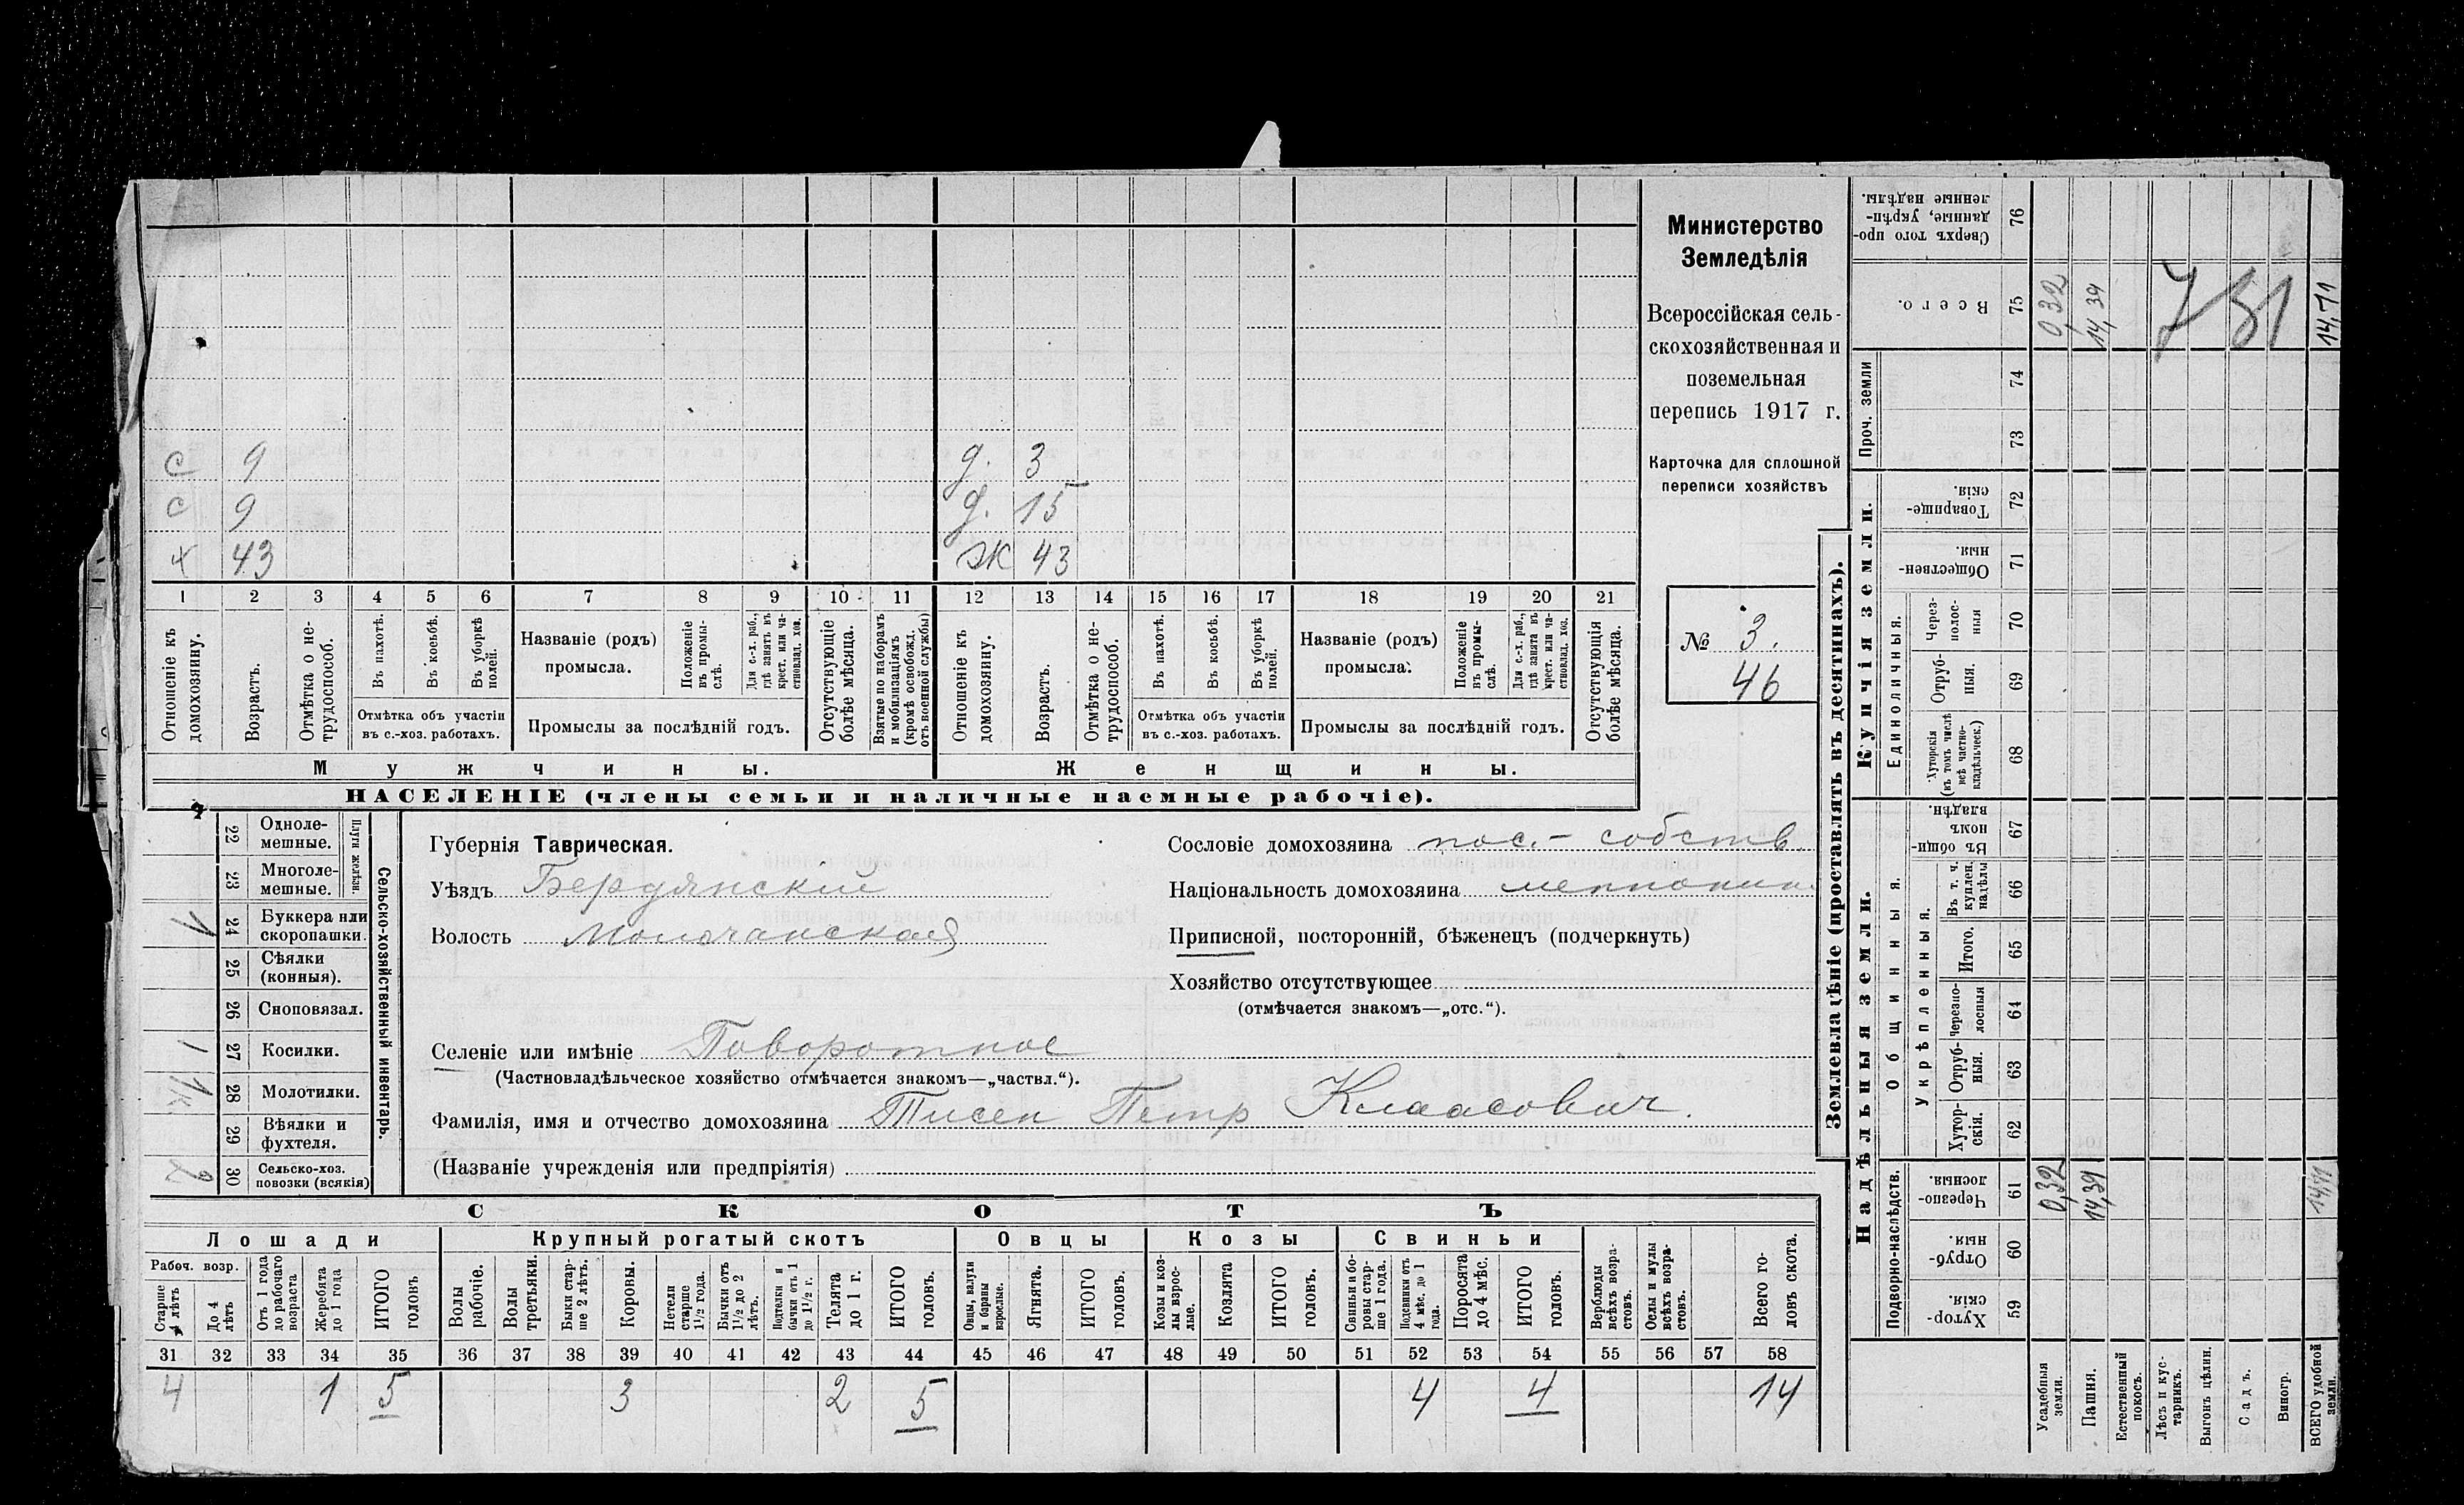 с 9 д. 3
с 9 д. 15
х 43 Ж 43
1 2 3 4 5 6 7 8 9 10 11 12 13 14 15 16 17 18 19 20 21
Отношеніе къ домохозяину.
Возрастъ.
Отмѣтка о не-
трудоспособ.
Въ пахотѣ.
Въ косьбѣ.
Въ уборкѣ
полей.
Отмѣтка объ участіи
въ с.-хоз. работахъ.
Названіе (родъ)
промысла.
Положеніе
въ промы-
слѣ.
Для с.-х. раб.,
гдѣ занятъ въ
крест. или ча-
стновлад. хоз.
Промыслы за послѣдній годъ.
Отсутствующіе
болѣе мѣсяца.
Взятые по наборамъ
и мобилизаціямъ
(кромѣ освобожд.
отъ военной службы)
Отношеніе къ
домохозяину.
Возрастъ.
Отмѣтка о не-
трудоспособ.
Въ пахотѣ.
Въ косьбѣ.
Въ уборкѣ
полей.
Отмѣтка объ участіи
въ с.-хоз. работахъ.
Названіе (родъ)
промысла.
Положеніе
въ промы-
слѣ.
Для с.-х. раб.,
гдѣ занята въ
крест. или ча-
стновлад. хоз.
Промыслы за послѣдній годъ.
Отсутствующія
болѣе мѣсяца.
Мужчины. Женщины.
НАСЕЛЕНІЕ (члены семьи и наличные наемные рабочіе).
Министерство
Земледѣлія
Всероссійская сель-
скохозяйственная и
поземельная
перепись 1917 г.
Карточка для сплошной
переписи хозяйствъ
№ 3.
46
Сельско-хозяйственный инвентарь.
Плуги желѣзн.
22 Одноле-
мешные.
23 Многоле-
мешные.
1 24 Буккера или
скоропашки.
25 Сѣялки
(конныя).
26 Сноповязал.
1 27 Косилки.
1к 28 Молотилки.
29 Вѣялки и
фухтеля.
2 30 Сельско-хоз.
повозки (всякія)
Губернія Таврическая.
Уѣздъ Бердянскій
Волость Молочанская
Селеніе или имѣніе Поворотное
(Частновладѣльческое хозяйство отмѣчается знакомъ—„частвл.“).
Фамилія, имя и отчество домохозяина Тисен Петр Клаасович.
(Названіе учрежденія или предпріятія)
Сословіе домохозяина пос.- собств.
Національность домохозяина меннонин.
Приписной, посторонній, бѣженецъ (подчеркнуть)
Хозяйство отсутствующее
(отмѣчается знакомъ—„отс.“).
СКОТЪ
Лошади Крупный рогатый скотъ Овцы Козы Свиньи
Рабоч. возр.
Старше
4 лѣтъ
До 4
лѣтъ
Отъ 1 года
до рабочаго
возраста
Жеребята
до 1 года
ИТОГО
головъ.
Волы
рабочіе.
Волы
третьяки.
Быки стар-
ше 2 лѣтъ.
Коровы.
Нетели
старше
1½ года.
Бычки отъ
1½ до 2
лѣтъ.
Подтелки и
бычки отъ 1
до 1½ г.
Телята
до 1 г.
ИТОГО
головъ.
Овцы, валухи
и бараны
взрослые.
Ягнята.
ИТОГО
головъ.
Козы и коз-
лы взрос-
лые.
Козлята
ИТОГО
головъ.
Свиньи и бо-
ровы стар-
ше 1 года.
Подсвинки отъ
4 мѣс. до 1
года.
Поросята
до 4 мѣс.
ИТОГО
головъ.
Верблюды
всѣхъ возра-
стовъ.
Ослы и мулы
всѣхъ возра-
стовъ.
Всего го-
ловъ скота.
31 32 33 34 35 36 37 38 39 40 41 42 43 44 45 46 47 48 49 50 51 52 53 54 55 56 57 58
4 1 5 3 2 5 4 4 14
Землевладѣніе (проставлять въ десятинахъ).
Надѣльныя земли. Купчія земли. Проч. земли
Подворно-наслѣдств.
Общинныя.
Укрѣпленныя.
Единоличныя.
Хутор-
скія. 59
Отруб-
ныя. 60
Черезпо-
лосныя. 61 0,32 14,39 14,71
Хутор-
скія. 62
Отруб-
ныя. 63
Черезпо-
лосныя 64
Итого. 65
Въ т. ч.
куплен.
надѣлы 66
Въ общин-
номъ
владѣн. 67
Хуторскія
(въ томъ числѣ
всѣ частно-
владѣльческ.) 68
Отруб-
ныя. 69
Через-
полос-
ныя 70
Обществен-
ныя. 71
Товарище-
скія. 72
73
74
Всего. 75 0,32 14,39 14,71
781
Сверхъ того про-
данные, укрѣп-
ленные надѣлы. 76
Усадебныя
земли.
Пашня.
Естественный
покосъ.
Лѣсъ и кус-
тарникъ.
Выгонъ цѣлин.
Садъ.
Виногр.
ВСЕГО удобной
земли.